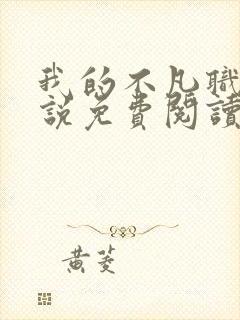 我的不凡職
說免費閱讀
黃菱